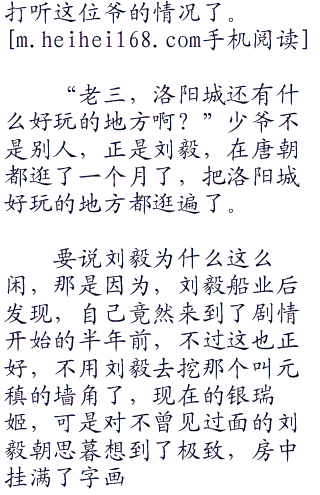 打听这位爷的情况了。
[m.heihei168.com手机阅读]
“老三，洛阳城还有什
么好玩的地方啊？”少爷不
是别人，正是刘毅，在唐朝
都逛了一个月了，把洛阳城
好玩的地方都逛遍了。
要说刘毅为什么这么
闲，那是因为，刘毅船业后
发现，自己竟然来到了剧情
开始的半年前，不过这也正
好，不用刘毅去挖那个叫元
稹的墙角了，现在的银瑞
姬，可是对不曾见过面的刘
毅朝思暮想到了极致，房中
挂满了字画